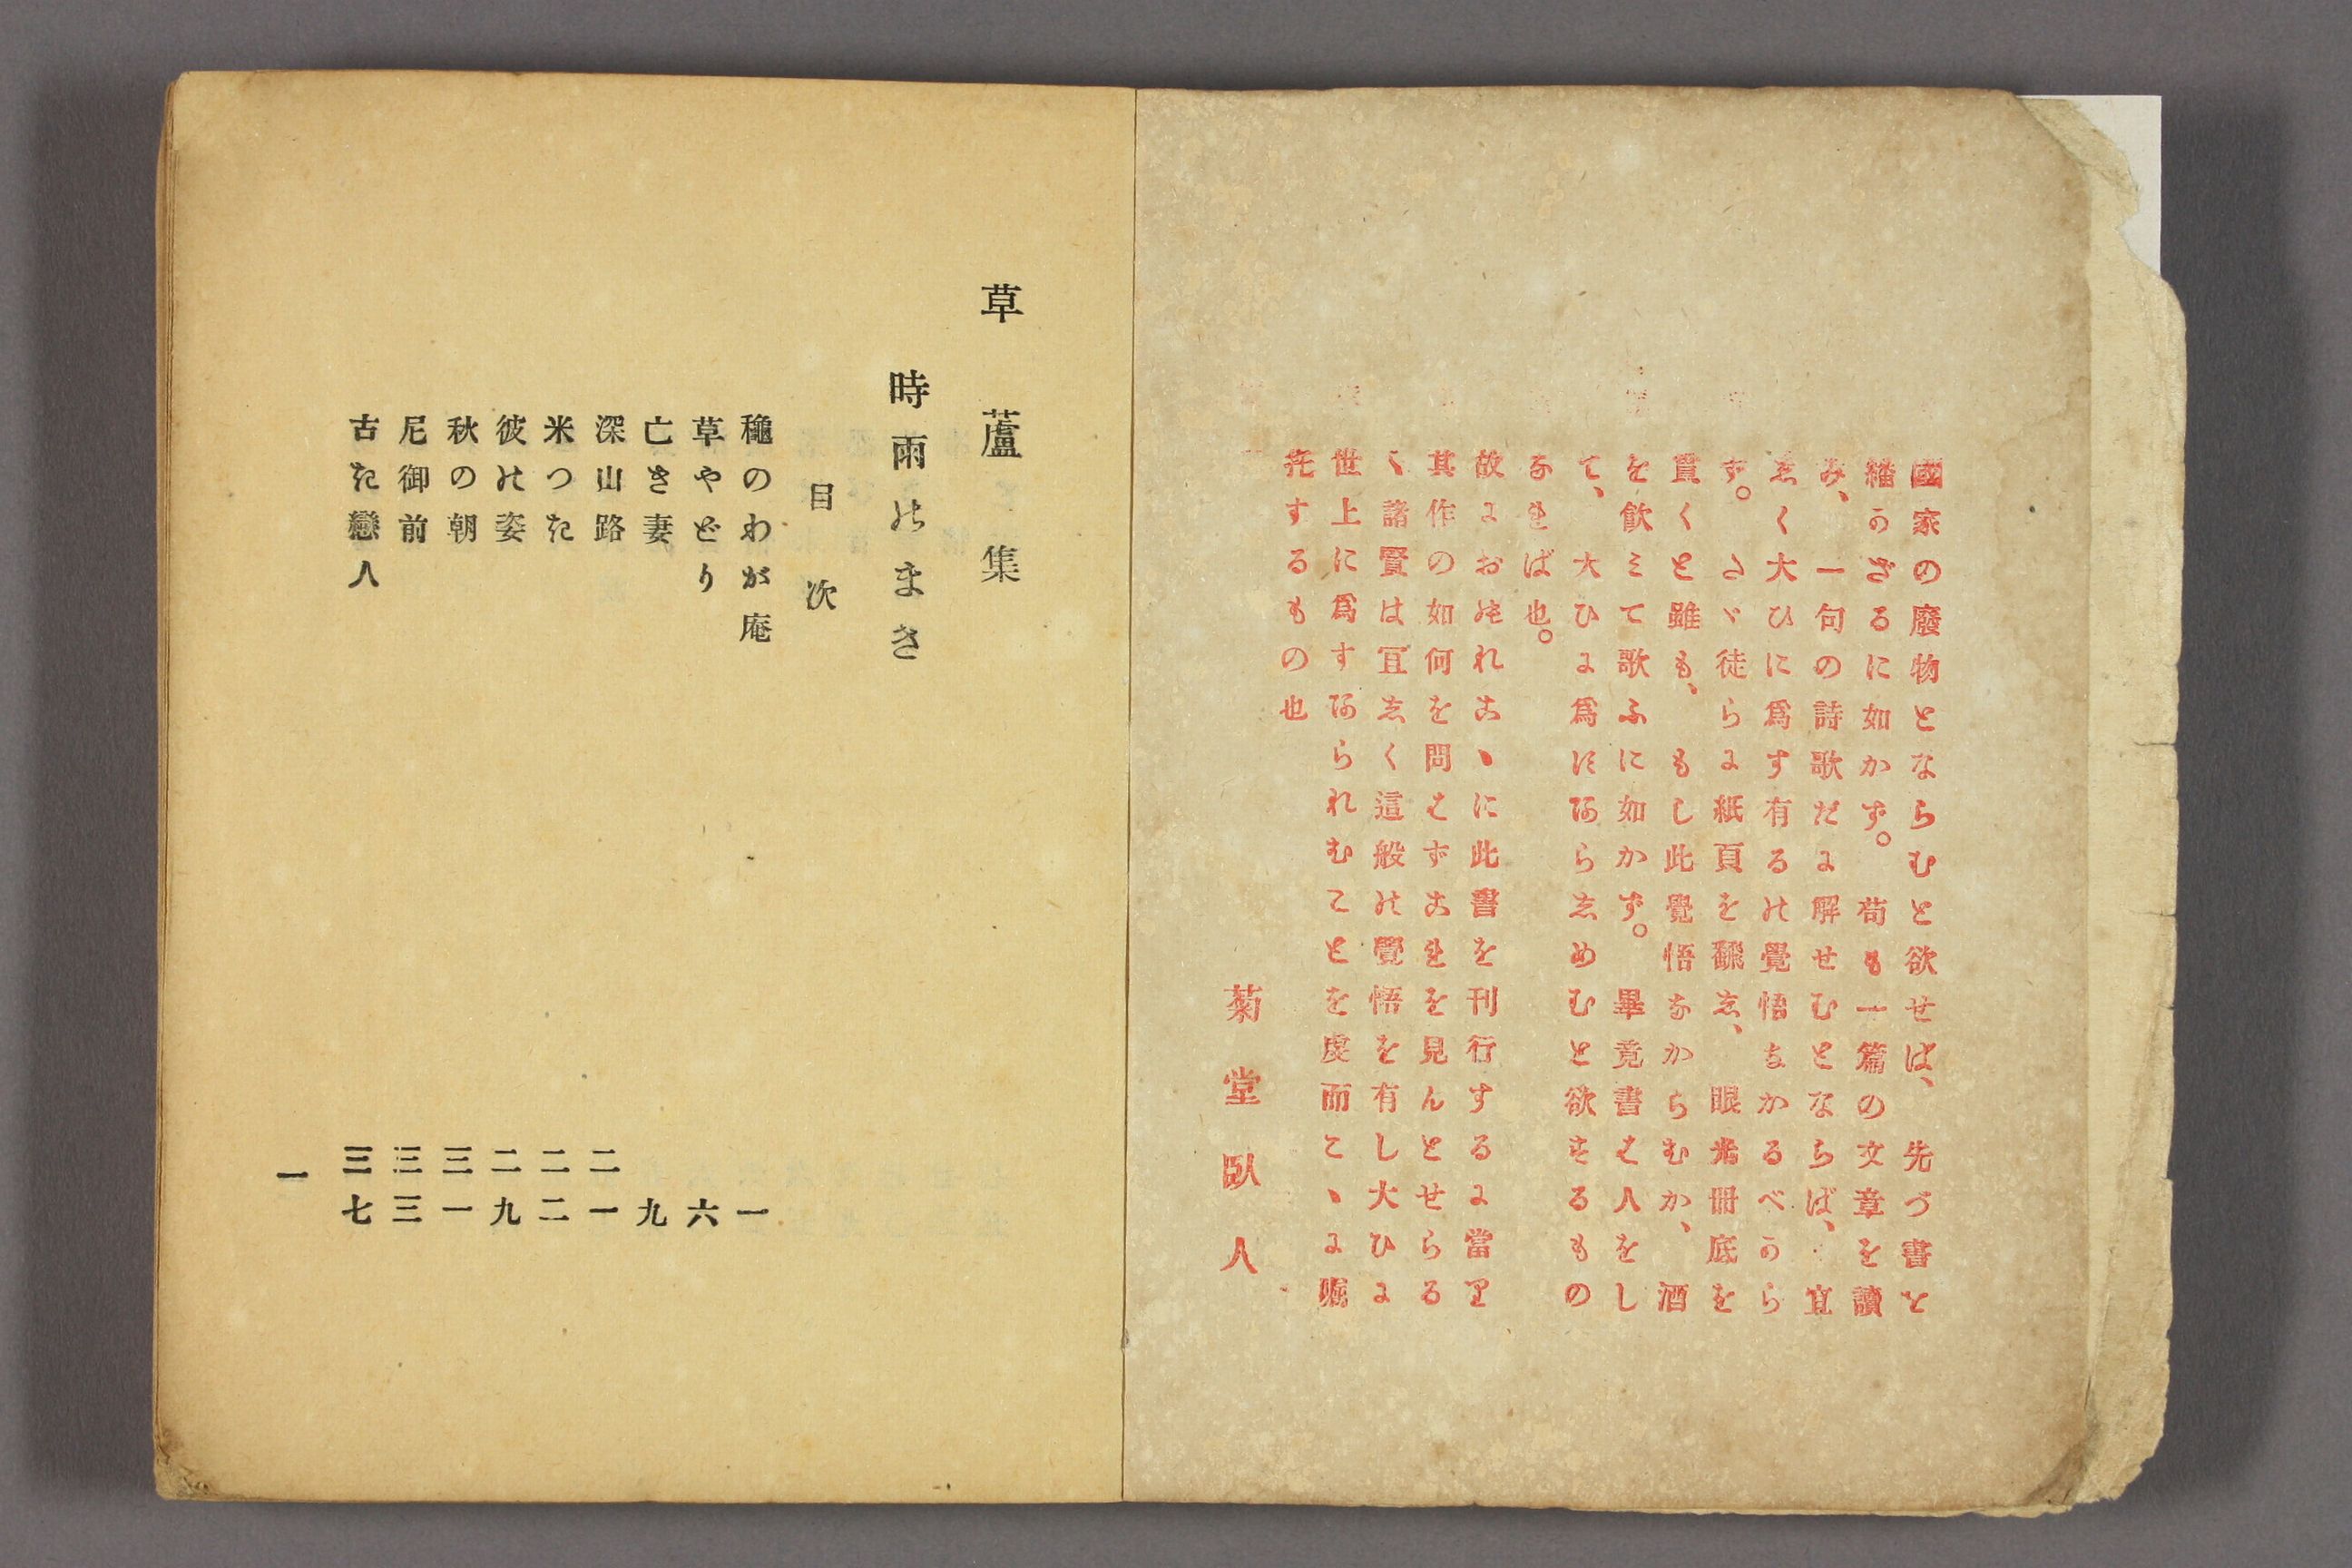 國家の廢物とならむと欲せば、先づ書と
繙かざるに如かず。苟も一篇の文章を讀
み、一句の詩歌だに解せむとならば、宜
しく大ひに爲す有るの覺悟なかるべから
ず。たゞ徒らに紙頁を飜し、眼光冊底を
貫くと雖も、もし此覺悟なからむか、酒
を飮みて歌ふに如かず。畢竟書は人をし
て、大ひに爲にあらしめむと欲するもの
なれば也。
故におのれこゝに此書を刊行するに當り
其作の如何を問はずこれを見んとせらる
ゝ諸賢は宜しく這般の覺悟を有し大ひに
世上に爲すあられむことを虔而こゝに囑
托するもの也
菊堂臥人
草蘆集
時雨のまき
目次
穐のわが庵 一
草やどり 六
亡き妻 九
深山路 二一
米つき 二二
彼の姿 二九
秋の朝 三一
尼御前 三三
古き戀人 三七
一